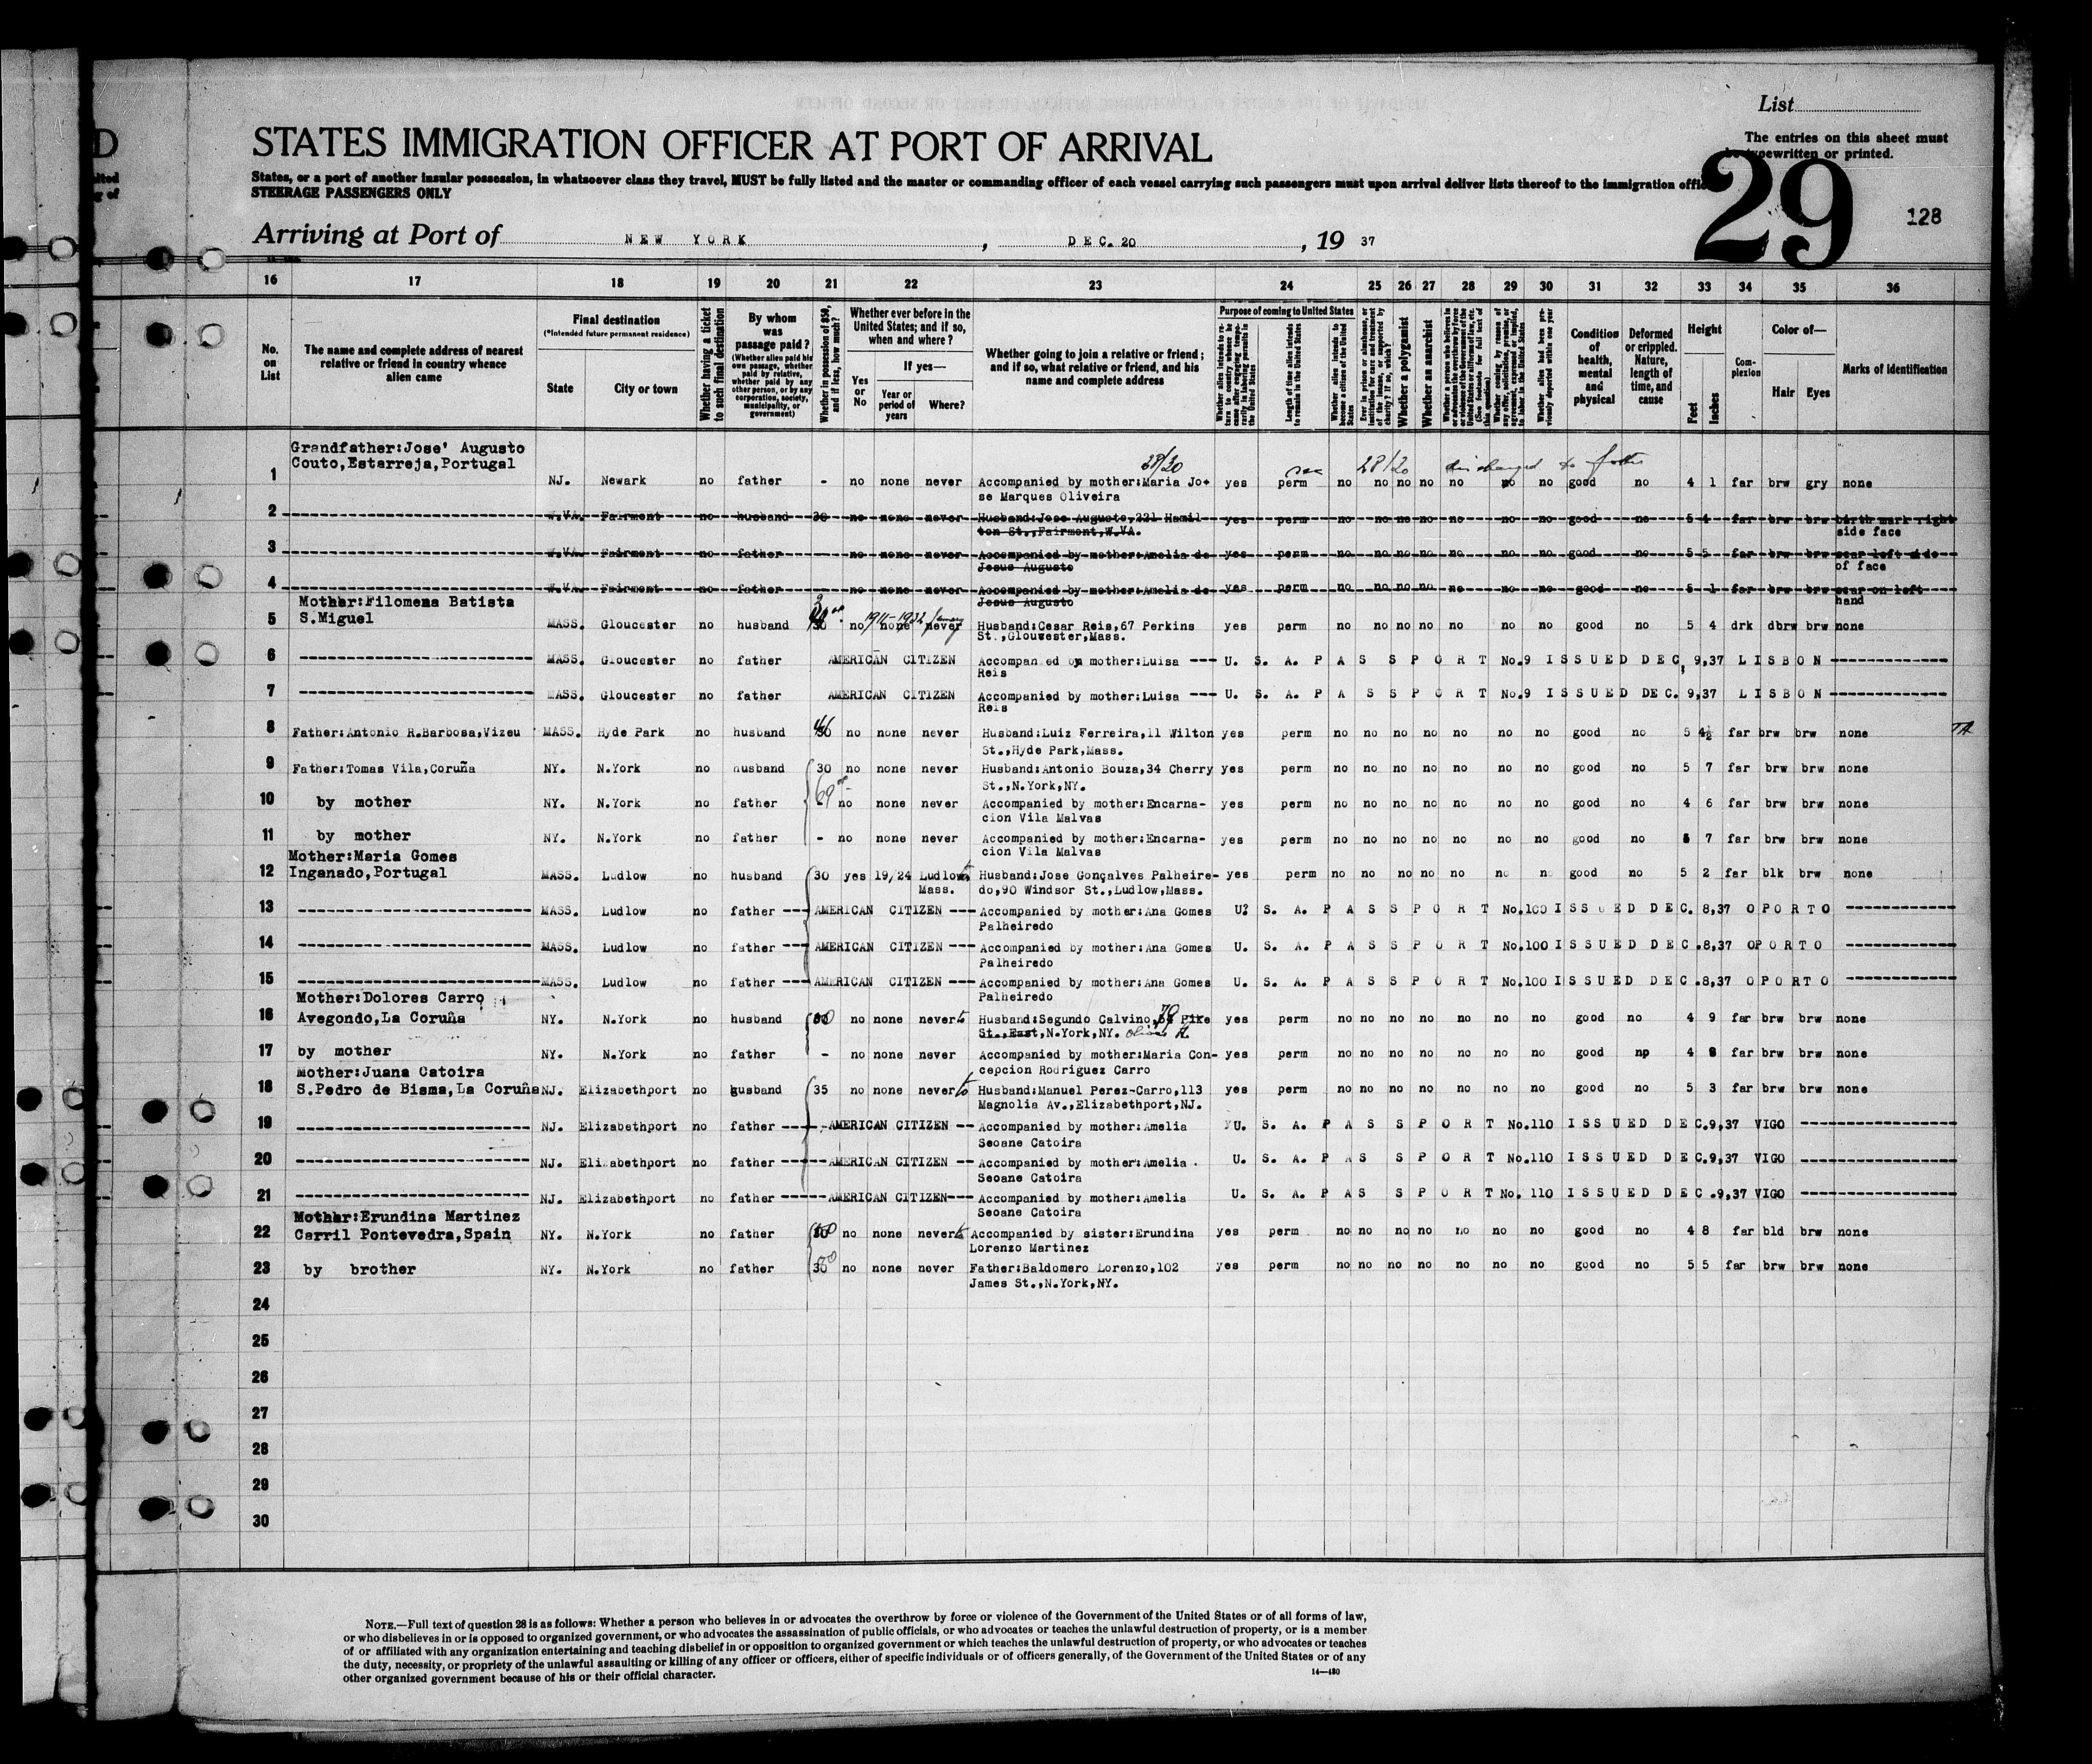 List
The entries on this sheet must
be typewritten or printed.
STATES IMMIGRATION OFFICER AT PORT OF ARRIVAL
States, or a port of another insular possession, in whatsoever class they travel, MUST be fully listed and the master or commanding officer of each vessel carrying such passengers must upon arrival deliver lists thereof to the immigration
STEERAGE PASSENGERS ONLY
29
128
Arriving at Port of NEW YORK, DEC. 20, 19 37
16 17 18 19 20 21 22 23 24 25 26 27 28 29 30 31 32 33 34 35 36
No. on List
The name and complete address of nearest relative or friend in country whence alien came
Final destination
(*Intended future permanent residence)
State
City or town
Whether having a ticket to such final destination
By whom was passage paid?
(Whether alien paid his own passage, whether paid by relative, whether paid by any other person, or by any corporation, society, municipality, or government)
Whether in possession of $50, and if less, how much?
Whether ever before in the United States; and if so, when and where?
Yes or No
If yes—
Year or period of years
Where?
Whether going to join a relative or friend; and if so, what relative or friend, and his name and complete address
Purpose of coming to United States
Length of time alien intends to remain in the United States
Whether alien intends to become a citizen of the United States
Whether a polygamist
Whether an anarchist
Whether alien had been previously deported within one year
Condition of health, mental and physical
Deformed or crippled. Nature, length of time, and cause
Height
Feet
Inches
Complexion
Color of—
Hair
Eyes
Marks of identification
Grandfather:Jose' Augusto
Couto,Estarreja,Portugal
28/20 28/20 discharged to father
1 NJ. Newark no father - no none never Accompanied by mother:Maria Jo- yes perm no no no no no no no good no 4 1 far brw gry none
se Marques Oliveira
2 W.VA. Fairmont no husband 30 no none never Husband:Jose Augusto,221 Hamil- yes perm no no no no no no no good no 5 4 far brw brw birth mark right
ton St.,Fairmont,W.VA. side face
3 W.VA. Fairmont no father no none never Accompanied by mother:Amelia de yes perm no no no no no no no good no 5 5 far brw brw scar left side
Jesus Augusto of face
4 W.VA. Fairmont no father no none never Accompanied by mother:Amelia de yes perm no no no no no no no good no 5 1 far brw brw scar on left
Jesus Augusto hand
Mother:Filomena Batista
5 S.Miguel MASS. Gloucester no husband 30 no none never Husband:Cesar Reis,67 Perkins yes perm no no no no no no no good no 5 4 drk dbrw brw none
St.,Gloucester,Mass.
6 MASS. Gloucester no father AMERICAN CITIZEN Accompanied by mother:Luisa --- U. S. A. PASSPORT No.9 ISSUED DEC, 9,37 LISBON
Reis
7 MASS. Gloucester no father AMERICAN CITIZEN Accompanied by mother:Luisa --- U. S. A. PASSPORT No.9 ISSUED DEC. 9,37 LISBON
Reis
8 Father:Antonio R.Barbosa,Vizeu MASS. Hyde Park no husband no none never Husband:Luiz Ferreira,11 Wilton yes perm no no no no no no no good no 5 4½ far brw brw none
St.,Hyde Park,Mass.
9 Father:Tomas Vila,Coruña NY. N.York no husband 30 no none never Husband:Antonio Bouza,34 Cherry yes perm no no no no no no no good no 5 7 far brw brw none
St.,N.York,NY.
10 by mother NY. N.York no father - no none never Accompanied by mother:Encarna- yes perm no no no no no no no good no 4 6 far brw brw none
cion Vila Malvas
11 by mother NY. N.York no father - no none never Accompanied by mother:Encarna- yes perm no no no no no no no good no 7 far brw brw none
cion Vila Malvas
Mother:Maria Gomes
12 Inganado,Portugal MASS. Ludlow no husband 30 yes 19/24 Ludlow Husband:Jose Gonçalves Palheire- yes perm no no no no no no no good no 5 2 far blk brw none
Mass. do,90 Windsor St.,Ludlow,Mass.
13 MASS. Ludlow no father --- AMERICAN CITIZEN --- Accompanied by mother:Ana Gomes U? S. A. PASSPORT No.100 ISSUED DEC. 8,37 OPORTO
Palheiredo
14 MASS. Ludlow no father --- AMERICAN CITIZEN --- Accompanied by mother:Ana Gomes U. S. A. PASSPORT No.100 ISSUED DEC.8,37 OPORTO
Palheiredo
15 MASS. Ludlow no father --- AMERICAN CITIZEN --- Accompanied by mother:Ana Gomes U. S. A. PASSPORT No.100 ISSUED DEC.8,37 OPORTO
Palheiredo
Mother:Dolores Carro
16 Avegondo,La Coruña NY. N.York no husband no none never Husband:Segundo Calvino, 70 Pike yes perm no no no no no no no good no 4 9 far brw brw none
St.,East,N.York,NY. Oliver St.
17 by mother NY. N.York no father - no none never Accompanied by mother:Maria Con- yes perm no no no no no no no good np 4 8 far brw brw none
cepcion Rodriguez Carro
Mother:Juana Catoira
18 S.Pedro de Bisma,La Coruña NJ. Elizabethport no gusband 35 no none never Husband:Manuel Perez-Carro,113 yes perm no no no no no no no good no 5 3 far brw brw none
Magnolia Av.,Elizabethport,NJ.
19 NJ. Elizabethport no father AMERICAN CITIZEN -- Accompanied by mother:Amelia U. S. A. PASSPORT No.110 ISSUED DEC.9,37 VIGO
Seoane Catoira
20 NJ. Elizabethport no father AMERICAN CITIZEN -- Accompanied by mother:Amelia U. S. A. PASSPORT No.110 ISSUED DEC.9,37 VIGO
Seoane Catoira
21 NJ. Elizabethport no father AMERICAN CITIZEN --- Accompanied by mother:Amelia U. S. A. PASSPORT No. 110 ISSUED DEC.9,37 VIGO
Seoane Catoira
Mother:Erundina Martinez
22 Carril Pontevedra,Spain NY. N.York no father no none never Accompanied by sister:Erundina yes perm no no no no no no no good no 4 8 far bld brw none
Lorenzo Martinez
23 by brother NY. N.York no father 30 no none never Father:Baldomero Lorenzo,102 yes perm no no no no no no no good no 5 5 far brw brw none
James St.,N.York,NY.
24
25
26
27
28
29
30
NOTE.—Full text of question 28 is as follows: Whether a person who believes in or advocates the overthrow by force or violence of the Government of the United States or of all forms of law,
or who disbelieves in or is opposed to organized government, or who advocates the assassination of public officials, or who advocates or teaches the unlawful destruction of property, or is a member
of or affiliated with any organization entertaining and teaching disbelief in or opposition to organized government or which teaches the unlawful destruction of property, or who advocates or teaches
the duty, necessity, or propriety of the unlawful assaulting or killing of any officer or officers, either of specific individuals or of officers generally, of the Government of the United States or of any
other organized government because of his or their official character.
14—430